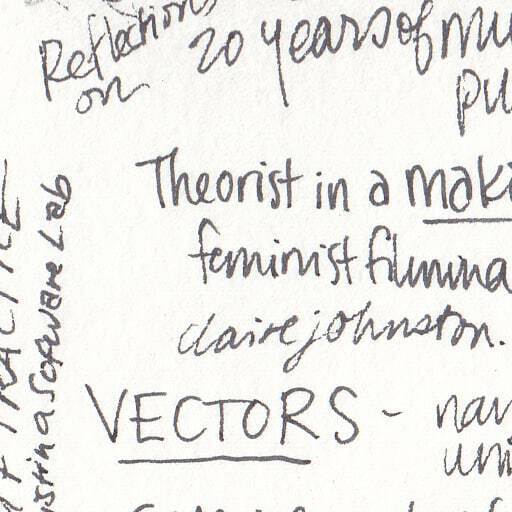 Reflections
on
20 years of mu
pu
Theorist in a maki
feminist filmma
claire johnston.
VECTORS - nav
uni
in a Software Lab